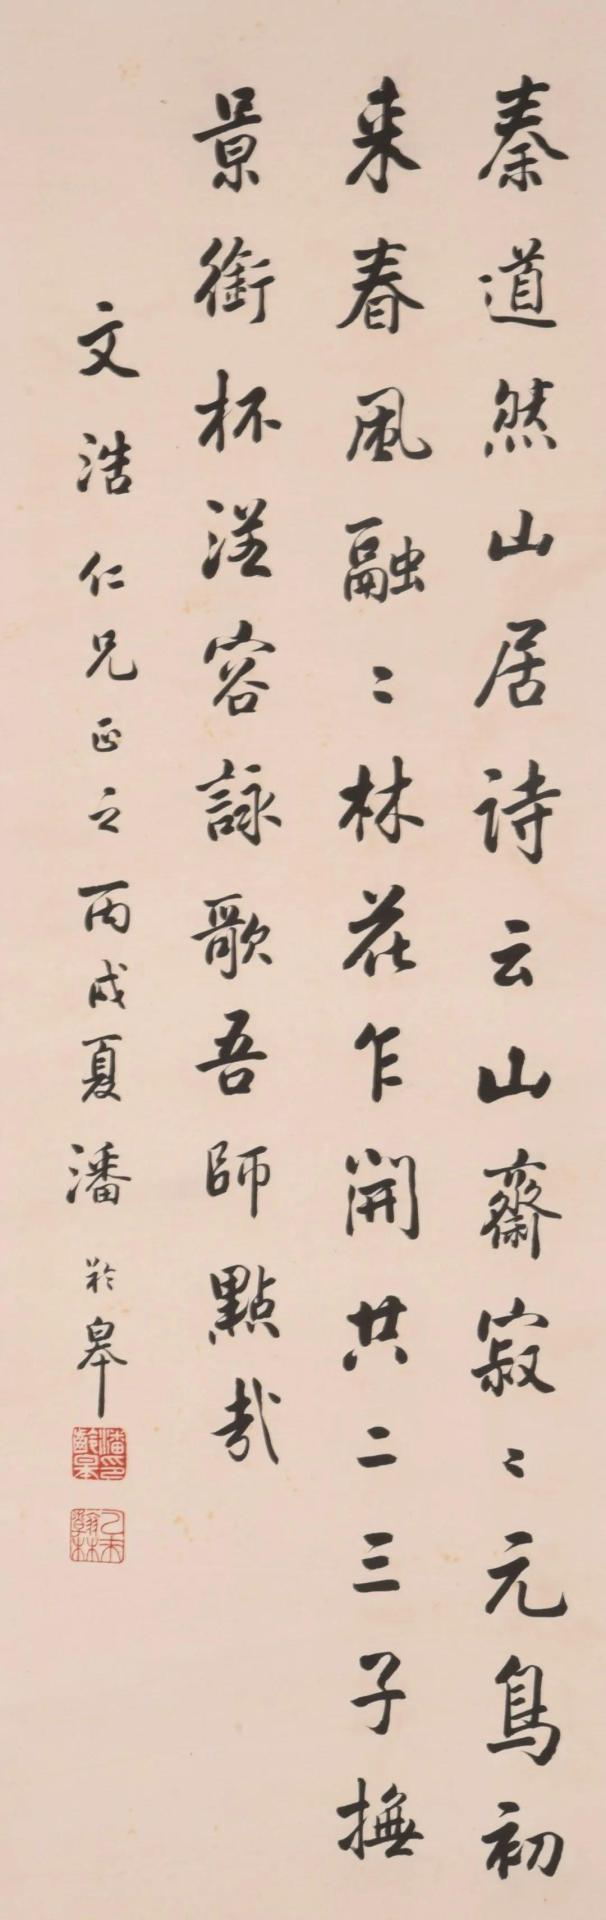 秦道然山居诗云山齋寂〻元鳥初
来春風融〻林花乍開共二三子撫
景銜杯從容詠歌吾師點哉
文浩仁兄正之丙戌夏潘齡皋
潘齡皋印
乙未翰林